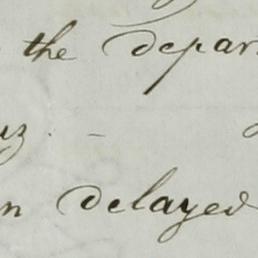 the depar
uz. -
n delayed